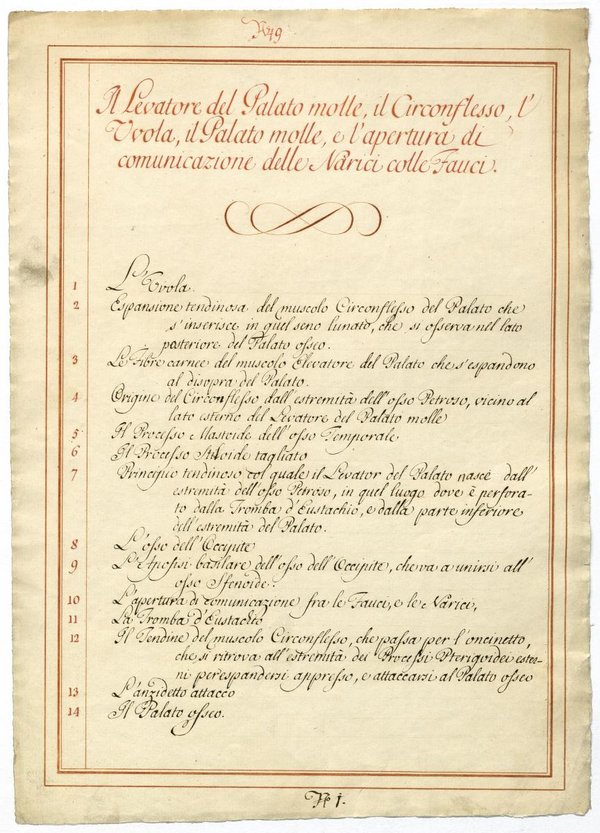 N 49
Il Levatore del Palato molle, il Circonflesso, l'
Uvola, il Palato molle, e l'apertura di
comunicazione delle Narici colle Fauci.
1 L'Uvola.
2 Espansione tendinosa del muscolo Circonflesso del Palato che
s'inserisce in quel seno lunato, che si osserva nel lato
posteriore del Palato osseo.
3 Le Fibre carnee del muscolo Elevatore del Palato che s'espandono
al disopra del Palato.
4 Origine del Circonflesso dall'estremità dell'osso Petroso, vicino al
lato esterno del Levatore del Palato molle
5 Il Processo Mastoide dell'osso Temporale
6 Il Processo Stiloide tagliato
7 Principio tendinoso col quale il Levator del Palato nasce dall'
estremità dell'osso Petroso, in quel luogo dove è perfora-
to dalla Tromba d'Eustachio, e dalla parte inferiore
dell'estremità del Palato.
8 L'osso dell'Occipite
9 L'Apofisi basilare dell'osso dell'Occipite, che va a unirsi all'
osso Sfenoide.
10 L'apertura di comunicazione fra le Fauci, e le Narice,
11 La Tromba d'Eustachio
12 Il Tendine del muscolo Circonflesso, che passa per l'oncinetto,
che si ritrova all'estremità dei Processi Pterigoidei ester-
ni per espandersi appresso, e attaccarsi al Palato osseo
13 L'anzidetto attacco
14 Il Palato osseo.
N 1.